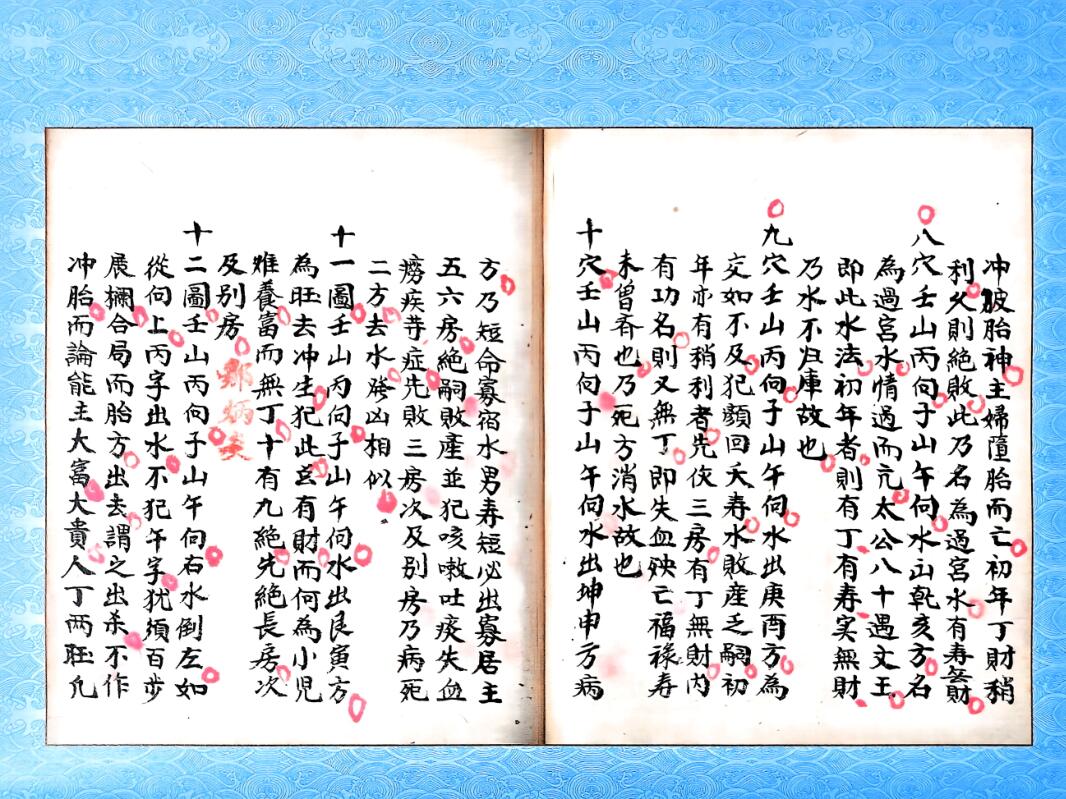 冲破胎神主婦墮胎而亡初年丁財稍
利久則絶敗此乃名為過宮水有寿無財
八穴壬山丙向子山午向水出乾亥方名
為過宮水情過而亢太公八十遇文王
即此水法初年者則有丁有寿实無財
乃水不归庫故也
九穴壬山丙向子山午向水出庚酉方為
交如不及犯顏回夭寿水敗産乏嗣初
年亦有稍利者先伎三房有丁無財内
有功名則又無丁即失血殃亡福禄寿
未曽斉也乃死方消水故也
十穴壬山丙向子山午向水出坤申方病
方乃短命寡宿水男寿短必出寡居主
五六房絶嗣敗産並犯咳嗽吐痰失血
癆疾等症先敗三房次及别房乃病死
二方去水凶相似
十一圖壬山丙向子山午向水出艮寅方
為旺去冲生犯此岂有財而何為小児
难養富而無丁十有九絶先絶長房次
及别房
鄭炳炎
十二圖壬山丙向子山午向右水倒左如
從向上丙字出水不犯午字犹須百步
展欄合局而胎方出去謂之出杀不作
冲胎而論能主大富大貴人丁两旺凡